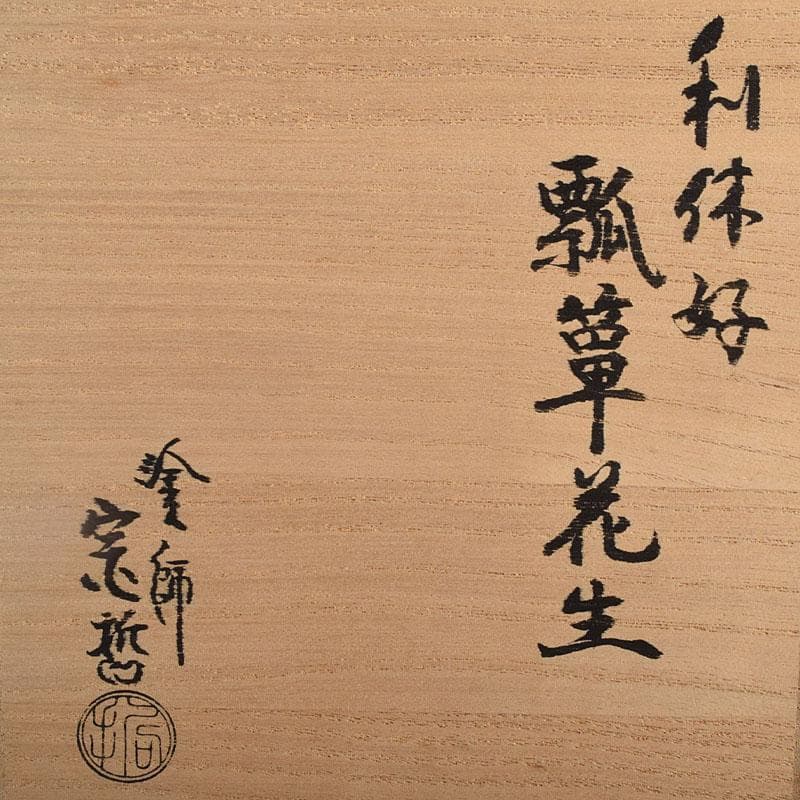 利休好
瓢箪花生
塗師
宗哲
哲